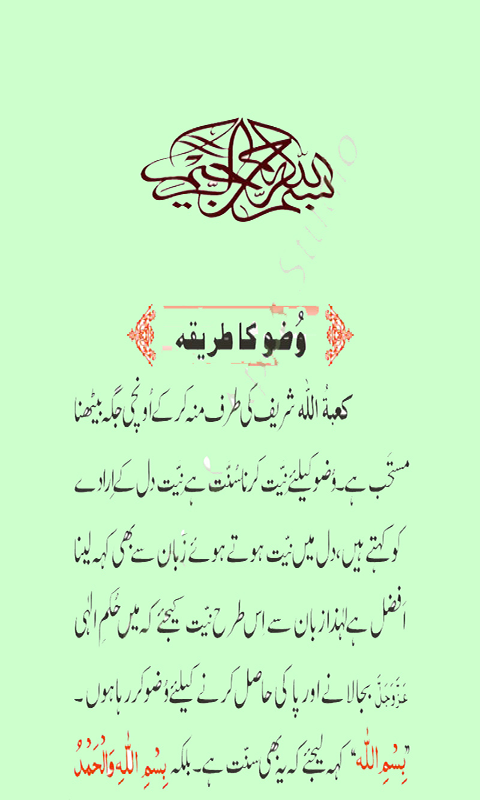 بسم الله الرحمن الرحيم
وُضو کا طریقہ
کعبۃُ اللہ شریف کی طرف منہ کر کے اُونچی جگہ بیٹھنا
مستَحَب ہے۔ وُضو کیلئے نیّت کرنا سُنّت ہے نیّت دل کے ارادے
کو کہتے ہیں، دل میں نیّت ہوتے ہوئے زَبان سے بھی کہہ لینا
اَفضل ہے لہٰذا زبان سے اِس طرح نیّت کیجئے کہ میں حُکمِ الٰہی
عَزَّوَجَلَّ بجا لانے اور پاکی حاصل کرنے کیلئے وُضو کر رہا ہوں۔
”بِسْمِ اللہ“ کہہ لیجئے کہ یہ بھی سنّت ہے۔ بلکہ بِسْمِ اللّٰہِ وَالْحَمْدُ